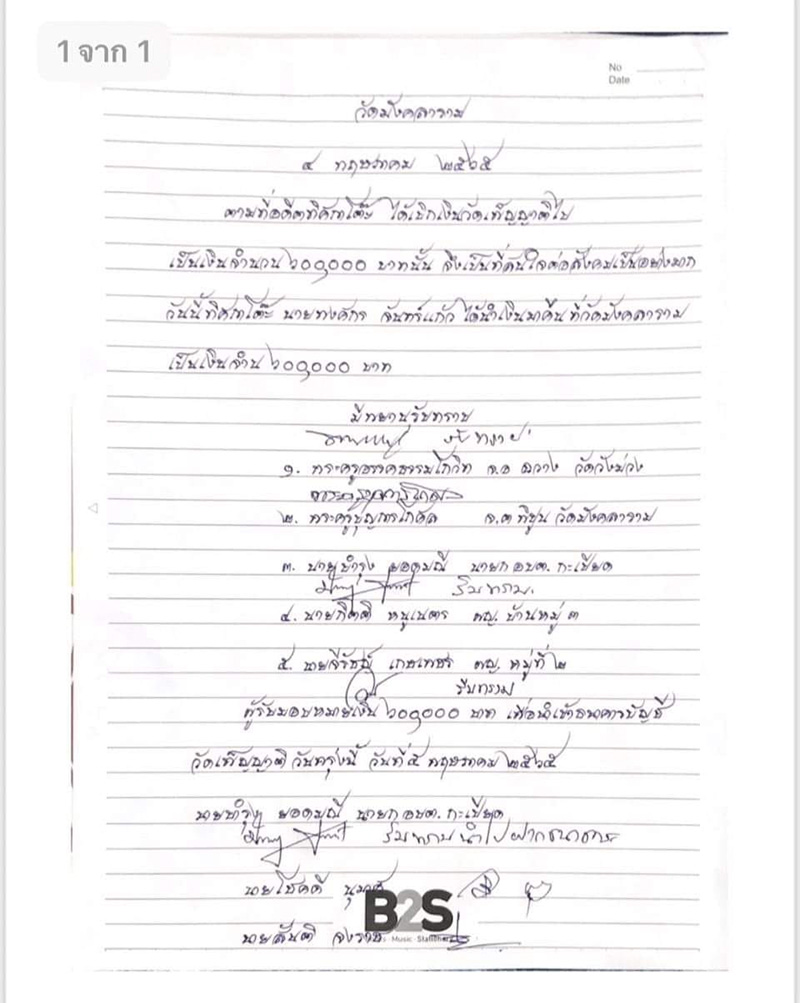 1 จาก 1
No
Date
วัดมังคลาราม
๔ พฤษภาคม ๒๕๖๕
ตามที่อดีตทิศภาโต๊ะ ได้เบิกเงินวัดเพ็ญญาติไป
เป็นเงินจำนวน ๖๐๐,๐๐๐ บาทนั้น จึงเป็นที่สนใจต่อสังคมเป็นอย่างมาก
วันนี้ทิศภาโต๊ะ นาย จันทร์แก้ว ได้นำเงินมาคืน ที่วัดมังคลาราม
เป็นเงินจำน ๖๐๐,๐๐๐ บาท
มีพยานรับทราบ
รับทราบ
๑. พระครู จ.อ ฉวาง วัดวังม่วง
๒. พระครู จ.ต พิปูน วัดมังคลาราม
๓. นายบำรุง ยอดมณี นายก อบต. กะเปียด
รับทราบ.
๔. นายกิตติ หนูเนตร ผญ. บ้านหมู่ ๓
๕. นาย เกษเพชร ผญ. หมู่ที่ ๒
รับทราบ
ผู้รับมอบหมายเงิน ๖๐๐,๐๐๐ บาท เพื่อนำเข้าธนาคารบัญชี
วัดเพ็ญญาติ วันพรุ่งนี้ วันที่ ๕ พฤษภาคม ๒๕๖๕
นายบำรุง ยอดมณี นายก อบต. กะเปียด
รับทราบนำไปฝากธนาคาร
นายโชคดี
B2S
นายสันติ
Music Stationery